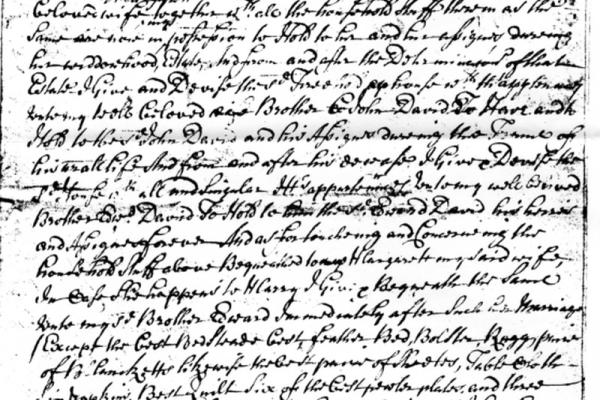 beloved wife together wth all the household stuff therein as the
Same are now in my possession to Hold to her and her assignes dureing
her widdowhood Estate, And from and after the Determination of that
Estate I Give and Devise the sd Freehold house wth th' appurten
unto my well beloved Brother John David To Have and to
Hold to the sd John David and his Assignes dureing the Terme of
his naturall life And from and after his decease I Give & Devise the
sd House wth all and Singular th' appurtennces unto my well beloved
Brother Edwd David To Hold to him the sd Edward David his heires
and Assignes forever And as for touching and Concerning the
household stuff above Bequeathed to my Margarete my said wife
In Case She happens to Marry I Give & Bequeath the Same
unto my sd Brother Edward immediately after Such her Marriage
(Except the best Bedsteade Best feather Bed, Bolster, Rugg, pare
of Blancketts likewise the best paire of Sheetes, Table Cloth
Six Napkins, Best Quilt Six of the best pewter plates, and three